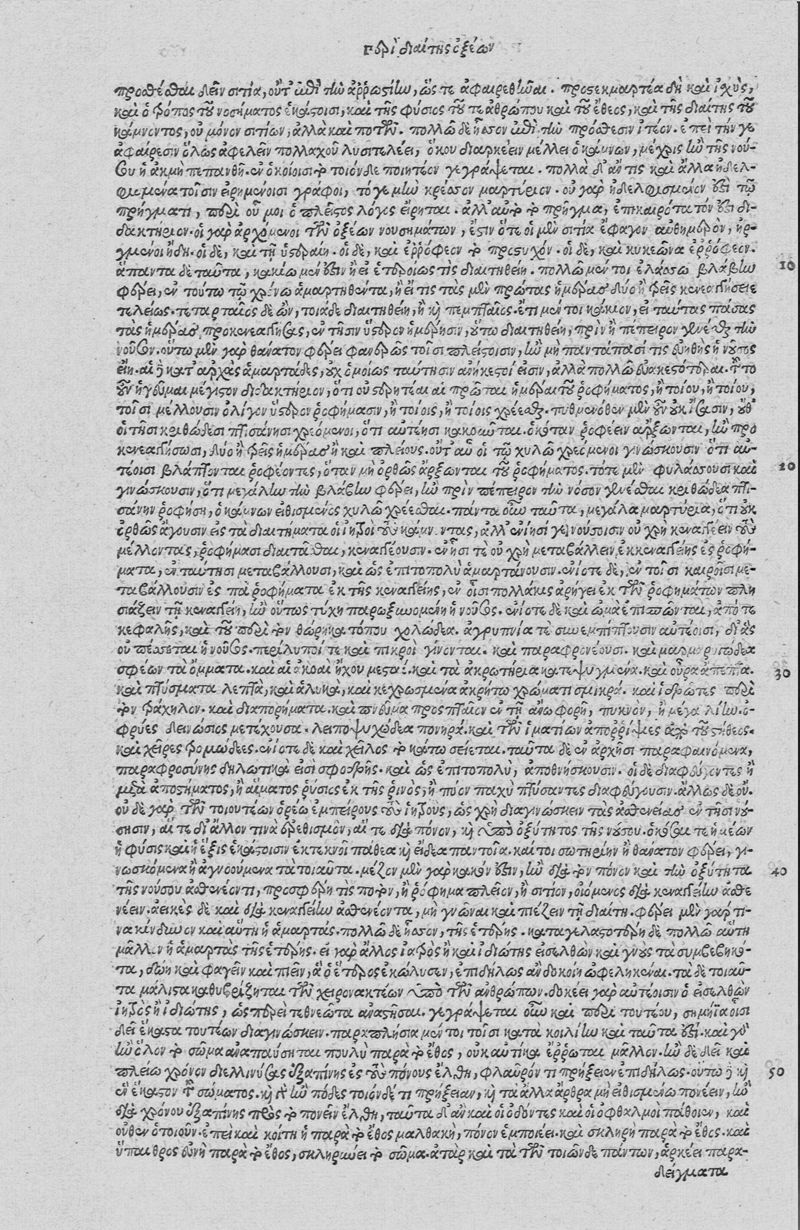 περὶ διαίτης ὀξέων
προσθέσθαι δεῖν σιτία, οὔτ' ἐπὶ τὴν ἀῤῥωστίην, ὥς τε ἀφαιρεθῆναι. προσεκμαρτέα δὴ καὶ ἰσχὺς,
καὶ ὁ τρόπος τοῦ νοσήματος ἑκάστοισι, καὶ τῆς φύσιος τοῦ τε ἀνθρώπου καὶ τοῦ ἔθεος, καὶ τῆς διαίτης τοῦ
κάμνοντος, οὐ μόνον σιτίων, ἀλλὰ καὶ ποτῶν. πολλῷ δὲ ἧσσον ἐπὶ τὴν πρόσθεσιν ἰτέον. ἐπεὶ τήν γε
ἀφαίρεσιν ὅλως ἀφελεῖν πολλαχοῦ λυσιτελέει, ὅκου διαρκέειν μέλλει ὁ κάμνων, μέχρις ἂν τῆς νού-
σου ἡ ἀκμὴ πεπανθῇ. ἐν ὁκοίοισι τὸ τοιόνδε ποιητέον γεγράψεται. πολλὰ δ' ἄν τις καὶ ἄλλα ἠδελ-
φισμένα τοῖσιν εἰρημένοισι γράφοι, τόγε μὴν κρέσσον μαρτύριον. οὐ γὰρ ἠδελφισμένον ἐστὶ τῷ
πρήγματι, περὶ οὗ μοι ὁ πλεῖστος λόγος εἴρηται. ἀλλ' αὐτὸ τὸ πρῆγμα, ἐπικαιρότατόν ἐστι δι-
δακτήριον. οἱ γὰρ ἀρχόμενοι τῶν ὀξέων νουσημάτων, ἔστιν ὅτε οἱ μὲν σιτία ἔφαγον αὐθημερὸν, ἠρ-
γμένοι ἤδη. οἱ δὲ, καὶ τῇ ὑστεραίῃ. οἱ δὲ, καὶ ἐῤῥόφεον τὸ προστυχόν. οἱ δὲ, καὶ κυκεῶνα ἐῤῥόφεον.
ἅπαντα δὲ ταῦτα, κακίω μέν ἐστιν ἢ εἰ ἑτεροίως τις διαιτηθείη. πολλῷ μέν τοι ἐλάσσω βλάβην
φέρει, ἐν τούτῳ τῷ χρόνῳ ἁμαρτηθέντα, ἢ εἴ τις τὰς μὲν πρώτας ἡμέρας δύο ἢ τρεῖς κενεαγγήσειε
τελείως. τεταρταῖος δὲ ὢν, τοιάδε διαιτηθείη, ἢ καὶ πεμπταῖος. ἔτι μέν τοι κάκιον, εἰ ταύτας πάσας
τὰς ἡμέρας προκενεαγγήσας, ἐν τῇσιν ὕστερον ἡμέρῃσιν, οὕτω διαιτηθείη, πρὶν ἢ πέπειρον γενέσθαι τὴν
νοῦσον. οὕτω μὲν γὰρ θάνατον φέρει φανερῶς τοῖσι πλείστοισιν, ἢν μὴ παντάπασί τις εὐήθης ἡ νοῦσος
εἴη. αἱ δὲ κατ' ἀρχὰς ἁμαρτάδες, οὐχ ὁμοίως ταύτῃσιν ἀνήκεστοί εἰσιν, ἀλλὰ πολλῷ εὐακεστότεραι. τοῦτο
οὖν ἡγεῦμαι μέγιστον διδακτήριον, ὅτι οὐ στερητέαι αἱ πρῶται ἡμέραι τοῦ ῥοφήματος, ἢ τοίου, ἢ τοίου,
τοῖσι μέλλουσιν ὀλίγον ὕστερον ῥοφήμασιν, ἢ τοίοις, ἢ τοίοις χρέεσθαι. πυθμενόθεν μὲν οὖν οὐκ ἴσασιν, οὔθ'
οἱ τῇσι κριθώδεσι πτισάνῃσι χρεόμενοι, ὅτι αὐτέῃσι κακοῦνται. ὁκόταν ῥοφέειν ἄρξωνται, ἢν προ-
κενεαγγήσωσι, δύο ἢ τρεῖς ἡμέρας ἢ καὶ πλείους. οὔτ' αὖ οἱ τῷ χυλῷ χρεόμενοι γινώσκουσιν ὅτι αὐ-
τέοισι βλάπτονται ῥοφέοντες, ὅταν μὴ ὀρθῶς ἄρξωνται τοῦ ῥοφήματος. τότε μὲν φυλάσσουσι καὶ
γινώσκουσιν, ὅτι μεγάλην τὴν βλάβην φέρει, ἢν πρὶν πέπειρον τὴν νόσον γενέσθαι κριθώδεα πτι-
σάνην ῥοφήσῃ, ὁ κάμνων εἰθισμένος χυλῷ χρέεσθαι. πάντα οὖν ταῦτα, μεγάλα μαρτύρια, ὅτι οὐκ
ὀρθῶς ἄγουσιν εἰς τὰ διαιτήματα οἱ ἰητροὶ τοὺς κάμνοντας, ἀλλ' ἐν ᾗσί γε νούσοισιν οὐ χρὴ κενεαγγέειν τοὺς
μέλλοντας, ῥοφήμασι διαιτᾶσθαι, κενεαγγέουσιν. ἐν ᾗσί τε οὐ χρὴ μεταβάλλειν, ἐκ κενεαγγείης ἐς ῥοφή-
ματα, ἐν ταύτῃσι μεταβάλλουσι, καὶ ὡς ἐπιτοπολὺ ἁμαρτάνουσιν. ἐνίοτε δὲ, ἐν τοῖσι καιροῖσι με-
ταβάλλουσιν ἐς τὰ ῥοφήματα ἐκ τῆς κενεαγγείης, ἐν οἷσι πολλάκις ἀρήγει ἐκ τῶν ῥοφημάτων πλη
σιάζειν τῇ κενεαγγείῃ, ἢν οὕτως τύχῃ παροξυνομένη ἡ νοῦσος. ἐνίοτε δὲ καὶ ὠμὰ ἐπισπῶνται, ἀπό τε
κεφαλῆς, καὶ τοῦ περὶ τὸν θώρηκα τόπου χολώδεα. ἀγρυπνίαι τε συνεμπίπτουσιν αὐτέοισι, δι' ἃς
οὐ πέσσεται ἡ νοῦσος. περίλυποί τε καὶ πικροὶ γίνονται. καὶ παραφρονέουσι. καὶ μαρμαρυγώδεα
σφέων τὰ ὄμματα. καὶ αἱ ἀκοαὶ ἤχου μεσταί. καὶ τὰ ἀκρωτήρια κατεψυγμένα. καὶ οὖρα ἄπεπτα.
καὶ πτύσματα λεπτὰ, καὶ ἁλυκὰ, καὶ κεχρωσμένα ἀκρήτῳ χρώματι σμικρά. καὶ ἱδρῶτες περὶ
τὸν τράχηλον. καὶ διαπορήματα. καὶ πνεῦμα προσπταῖον ἐν τῇ ἄνω φορῇ, πυκνὸν, ἢ μέγα λίην. ὀ-
φρύες δεινώσιος μετέχουσαι. λειποψυχώδεα πονηρά. καὶ τῶν ἱματίων ἀποῤῥίψιες ἀπὸ τοῦ στήθεος.
καὶ χεῖρες τρομώδεες. ἐνίοτε δὲ καὶ χεῖλος τὸ κάτω σείεται. ταῦτα δὲ ἐν ἀρχῇσι παραφαινόμενα,
παραφροσύνης δηλωτικά εἰσι σφοδρῆς. καὶ ὡς ἐπιτοπολὺ, ἀποθνήσκουσιν. οἱ δὲ διαφεύγοντες ἢ
μετὰ ἀποστήματος, ἢ αἵματος ῥύσιος ἐκ τῆς ῥινὸς, ἢ πύον παχὺ πτύσαντες διαφεύγουσιν. ἄλλως δὲ οὔ.
οὐδὲ γὰρ τῶν τοιουτέων ὁρέω ἐμπείρους τοὺς ἰητροὺς, ὡς χρὴ διαγινώσκειν τὰς ἀσθενείας ἐν τῇσι νού-
σοισιν, αἵ τε δι' ἄλλον τινὰ ἐρεθισμὸν, αἵ τε διὰ πόνον, καὶ ὑπὸ ὀξύτητος τῆς νούσου. ὁκόσα τε ἡμέων
ἡ φύσις καὶ ἡ ἕξις ἑκάστοισιν ἐκτεκνοῖ πάθεα καὶ εἴδεα παντοῖα. καί τοι σωτηρίην ἢ θάνατον φέρει, γι-
νωσκόμενα ἢ ἀγνοούμενα τὰ τοιαῦτα. μεῖζον μὲν γὰρ κακόν ἐστιν, ἢν διὰ τὸν πόνον καὶ τὴν ὀξύτητα
τῆς νούσου ἀσθενέοντι, προσφέρῃ τις ποτὸν, ἢ ῥόφημα πλεῖον, ἢ σιτίον, οἰόμενος διὰ κενεαγγείην ἀσθε
νέειν. ἀεικὲς δὲ καὶ διὰ κενεαγγείην ἀσθενέοντα, μὴ γνῶναι καὶ πιέζειν τῇ διαίτῃ. φέρει μὲν γάρ τι-
να κίνδυνον καὶ αὕτη ἡ ἁμαρτάς. πολλῷ δὲ ἧσσον, τῆς ἑτέρης. καταγελαστοτέρη δὲ πολλῷ αὕτη
μᾶλλον ἡ ἁμαρτὰς τῆς ἑτέρης. εἰ γὰρ ἄλλος ἰατρὸς ἢ καὶ ἰδιώτης εἰσελθὼν καὶ γνοὺς τὰ συμβεβηκό-
τα, δῴη καὶ φαγεῖν καὶ πιεῖν, ἃ ὁ ἕτερος ἐκώλυσεν, ἐπιδήλως ἂν δοκοίη ὠφεληκέναι. τὰ δὲ τοιαῦ-
τα μάλιστα καθυβρίζηται τῶν χειρονακτέων ὑπὸ τῶν ἀνθρώπων. δοκέει γὰρ αὐτέοισιν ὁ εἰσελθὼν
ἰητρὸς ἢ ἰδιώτης, ὡσπερεὶ τεθνεῶτα ἀναστῆσαι. γεγράψεται οὖν καὶ περὶ τουτέου, σημῆϊα οἷσι
δεῖ ἕκαστα τουτέων διαγινώσκειν. παραπλήσια μέν τοι τοῖσι κατὰ κοιλίην καὶ ταῦτά ἐστι. καὶ γὰρ
ἢν ὅλον τὸ σῶμα ἀναπαύσηται πουλὺ παρὰ τὸ ἔθος, οὐκ αὐτίκα ἔῤῥωται μᾶλλον. ἢν δὲ δεῖ καὶ
πλείω χρόνον διελλινύσας ἐξαπίνης ἐς τοὺς πόνους ἔλθῃ, φλαῦρόν τι πρήξει ἐπιδήλως. οὕτω δὲ καὶ
ἓν ἕκαστον τοῦ σώματος. καὶ γὰρ ἢν πόδες τοιόνδε τι πρήξειαν, καὶ τὰ ἄλλα ἄρθρα μὴ εἰθισμένῳ πονέειν, ἢν
διὰ χρόνου ἐξαπίνης πρὸς τὸ πονεῖν ἔλθῃ, ταῦτα δ' ἂν καὶ οἱ ὀδόντες καὶ οἱ ὀφθαλμοὶ πάθοιεν, καὶ
οὐθὲν ὁτιοῦν. ἐπεὶ καὶ κοίτη ἡ παρὰ τὸ ἔθος μαλθακὴ, πόνον ἐμποιέει. καὶ σκληρὴ παρὰ τὸ ἔθος. καὶ
ὕπαιθρος εὐνὴ παρὰ τὸ ἔθος, σκληρύνει τὸ σῶμα. ἀτὰρ καὶ τὰ τῶν τοιῶνδε πάντων, ἀρκέει παρα-
δείγματα
10
20
30
40
50